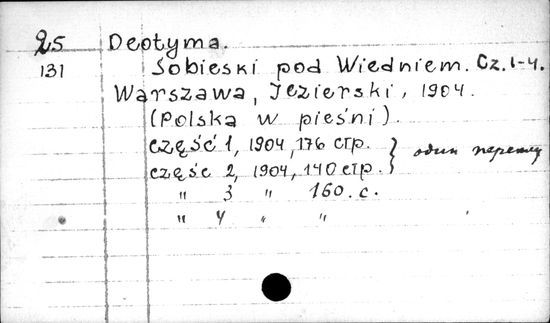 25 Deotyma.
131 Sobieski pod Wiedniem. Cz. 1-4.
Warszawa, Jezierski, 1904.
(Polska w pieśni).
część 1, 1904, 176 стр.
częśc 2, 1904, 140 стр. } один
" 3 " 160. с.
" 4 " "